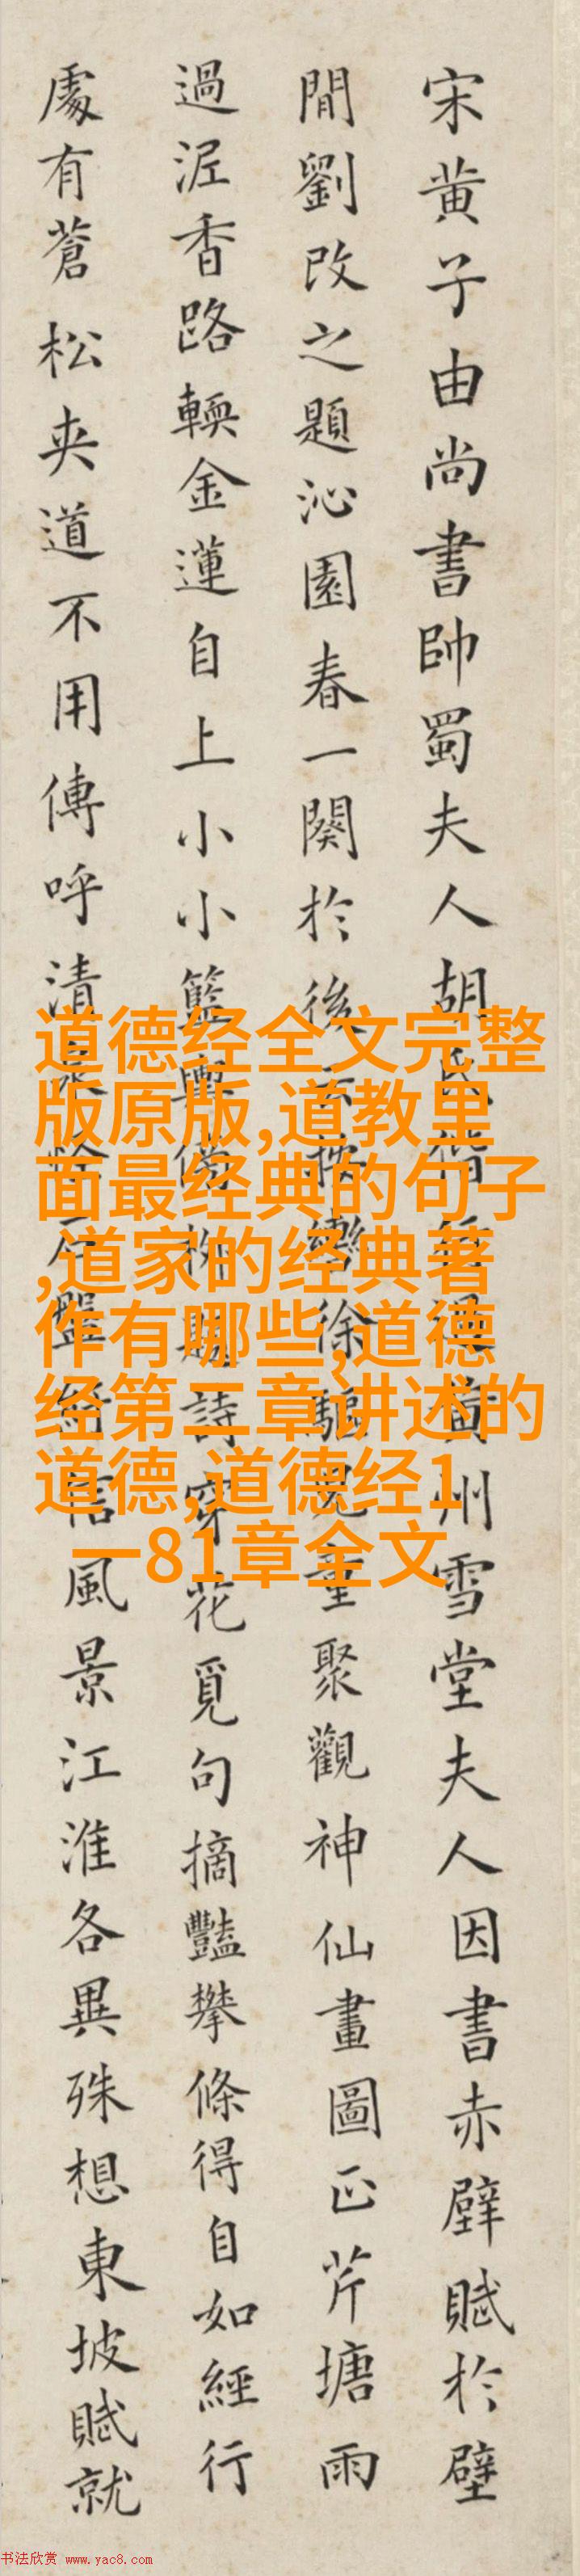 宋黄子由尚書帥蜀夫人胡氏偕行過黄州雪堂夫人因書赤壁賦於壁
間劉改之題沁園春一闋於後云按轡徐驅兒童聚觀神仙畫圖正芹塘雨
過泥香路輭金蓮自上小小籃輿傍柳題詩穿花覓句摘豔攀條得自如經行
處有蒼松夾道不用傳呼清泉恠石盤紆信風景江淮各異殊想東坡賦就
道德经全文完整
版原版,道教里
面最经典的句子
,道家的经典著
作有哪些,道德
经第二章讲述的
道德,道德经1
一81章全文
书法欣赏 www.yac8.com